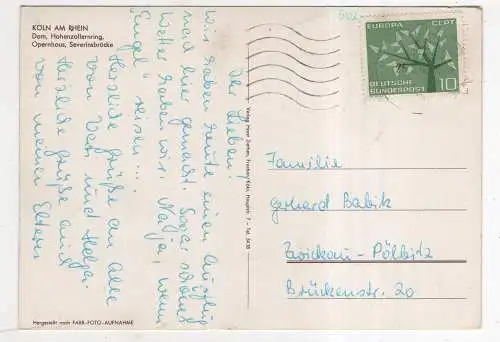 KÖLN AM RHEIN
Dom, Hohenzollernring,
Opernhaus, Severinsbrücke
Ihr Lieben!
Wir haben heute einen Ausflug
nach hier gemacht. Sooo schönes
Wetter haben wir. Na ja, wenn
"Engel" reisen...
Herzliche Grüße an Alle
von Vati und Helga.
Herzliche Grüße auch
von meinen Eltern
Hergestellt nach FARB-FOTO-AUFNAHME
EUROPA CEPT
DEUTSCHE
BUNDESPOST 10
Familie
Gerhard Babik
Zwickau-Pölbitz
Brückenstr. 20